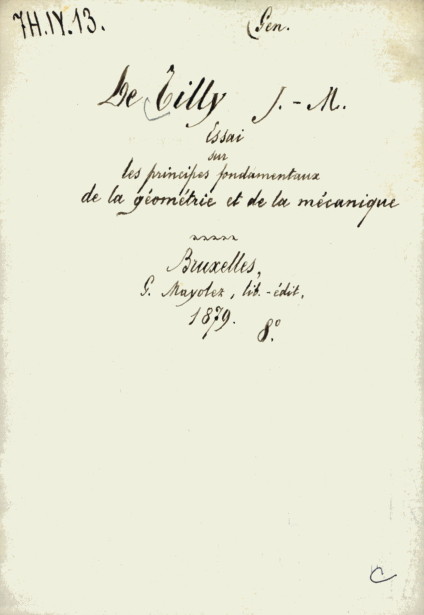 7H.IY.13.
Gen.
De Tilly J.-M.
Essai
sur
les principes fondamentaux
de la géométrie et de la mécanique
Bruxelles,
G. Mayolez, lib.-édit,
1879. 8°